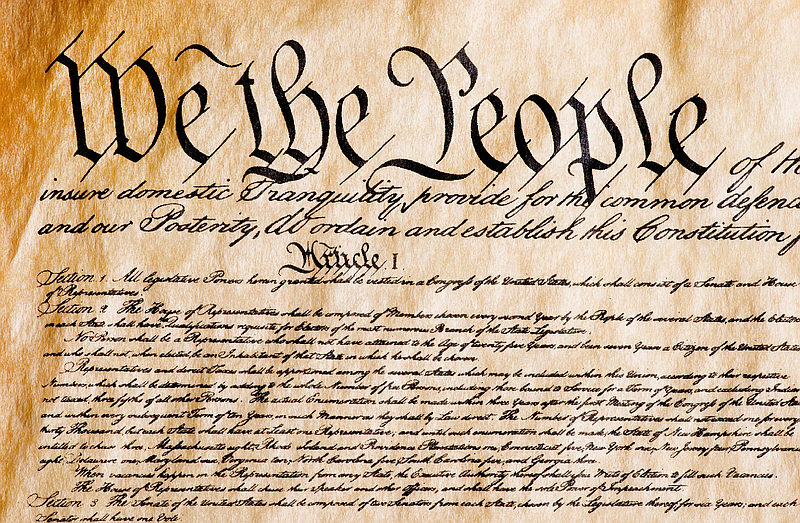 We the People of th
insure domestic Tranquility, provide for the common defenc
and our Posterity, do ordain and establish this Constitution f
Article. I.
Section. 1. All legislative Powers herein granted shall be vested in a Congress of the United States, which shall consist of a Senate and House
of Representatives.
Section. 2. The House of Representatives shall be composed of Members chosen every second Year by the People of the several States, and the Electors
in each State shall have Qualifications requisite for Electors of the most numerous Branch of the State Legislature.
No Person shall be a Representative who shall not have attained to the Age of twenty five Years, and been seven Years a Citizen of the United States
and who shall not, when elected, be an Inhabitant of that State in which he shall be chosen.
Representatives and direct Taxes shall be apportioned among the several States which may be included within this Union, according to their respective
Numbers, which shall be determined by adding to the whole Number of free Persons, including those bound to Service for a Term of Years, and excluding Indian
not taxed, three fifths of all other Persons. The actual Enumeration shall be made within three Years after the first Meeting of the Congress of the United States
and within every subsequent Term of ten Years, in such Manner as they shall by Law direct. The Number of Representatives shall not exceed one for every
thirty Thousand, but each State shall have at Least one Representative; and until such enumeration shall be made, the State of New Hampshire shall be
entitled to chuse three, Massachusetts eight, Rhode Island and Providence Plantations one, Connecticut five, New York six, New Jersey four, Pennsylvania
eight, Delaware one, Maryland six, Virginia ten, North Carolina five, South Carolina five, and Georgia three.
When vacancies happen in the Representation from any State, the Executive Authority thereof shall issue Writs of Election to fill such Vacancies.
The House of Representatives shall chuse their Speaker and other Officers; and shall have the sole Power of Impeachment.
Section. 3. The Senate of the United States shall be composed of two Senators from each State, chosen by the Legislature thereof, for six Years; and each
Senator shall have one Vote.